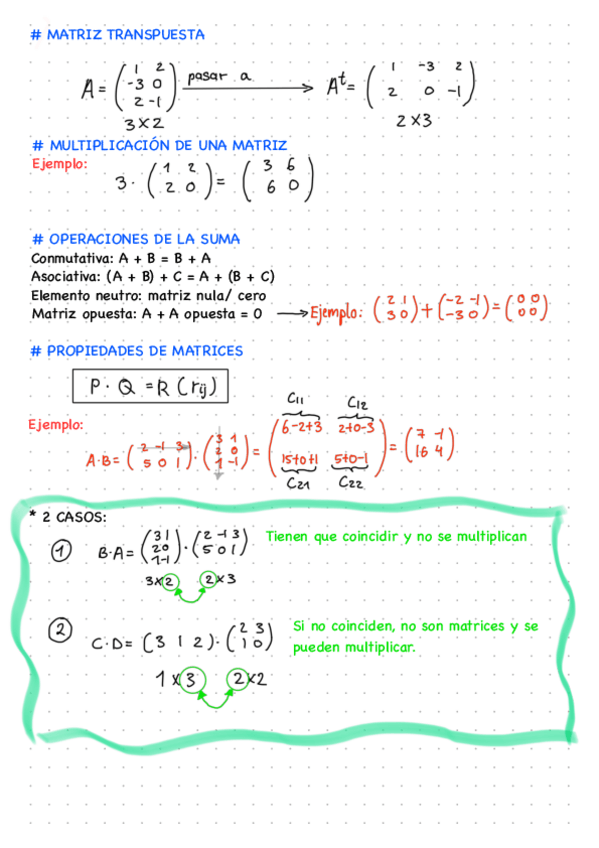 # MATRIZ TRANSPUESTA
A = ( 1 2 / -3 0 / 2 -1 ) pasar a → Aᵗ = ( 1 -3 2 / 2 0 -1 )
3X2 2X3
# MULTIPLICACIÓN DE UNA MATRIZ
Ejemplo:
3 · ( 1 2 / 2 0 ) = ( 3 6 / 6 0 )
# OPERACIONES DE LA SUMA
Conmutativa: A + B = B + A
Asociativa: (A + B) + C = A + (B + C)
Elemento neutro: matriz nula/ cero
Matriz opuesta: A + A opuesta = 0 → Ejemplo: ( 2 1 / 3 0 ) + ( -2 -1 / -3 0 ) = ( 0 0 / 0 0 )
# PROPIEDADES DE MATRICES
P · Q = R (rij)
Ejemplo:
C11 C12
A·B = ( 2 -1 3 / 5 0 1 ) · ( 3 1 / 2 0 / 1 -1 ) = ( 6-2+3 2+0-3 / 15+0+1 5+0-1 ) = ( 7 -1 / 16 4 )
C21 C22
* 2 CASOS:
1 B·A = ( 3 1 / 2 0 / 1 -1 ) · ( 2 -1 3 / 5 0 1 ) Tienen que coincidir y no se multiplican
3x2 2x3
2 C·D = ( 3 1 2 ) · ( 2 3 / 1 0 ) Si no coinciden, no son matrices y se
pueden multiplicar.
1 x 3 2x2